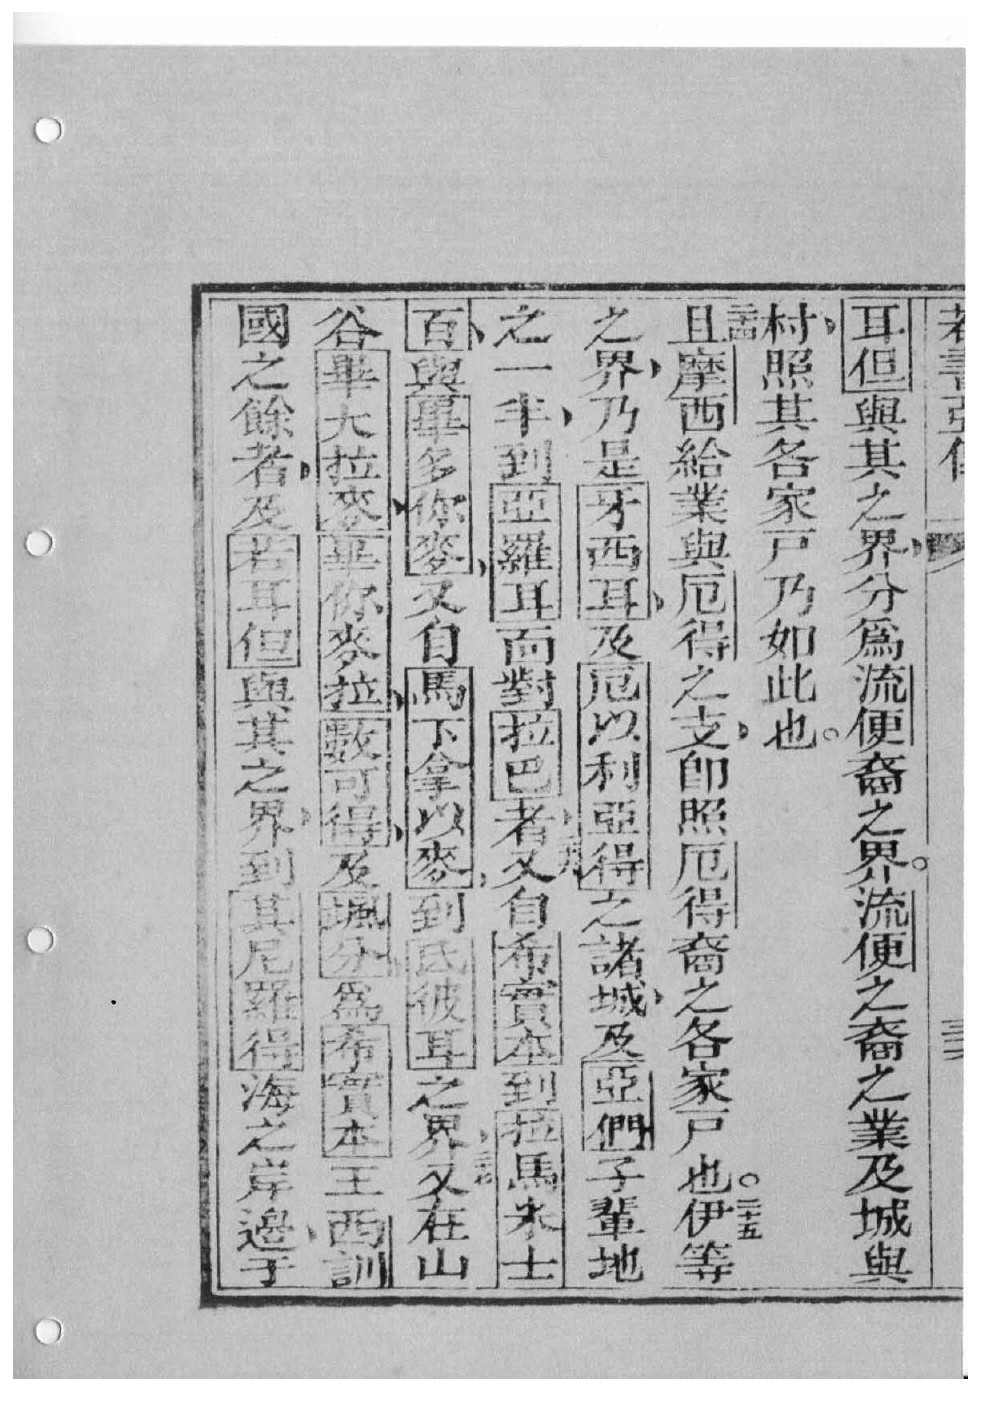 若書亞傳
耳但與其之界、分爲流便裔之界。流便之裔之業及城與
村、照其各家戸乃如此也。
二十四且摩西給業與厄得之支、卽照厄得裔之各家戸也。二十五伊等
之界、乃是牙西耳、及厄以利亞得之諸城、及亞們子輩地
之一半、到亞羅耳面對拉巴者、又自希實本到拉馬米士
百、與畢多你麥、又自馬下拿以麥、到氐彼耳之界、又在山
谷畢大拉麥、畢你麥拉、數可得、及颯分、爲希實本王西訓
國之餘者、及若耳但與其之界、到其尼羅得海之岸邊、于